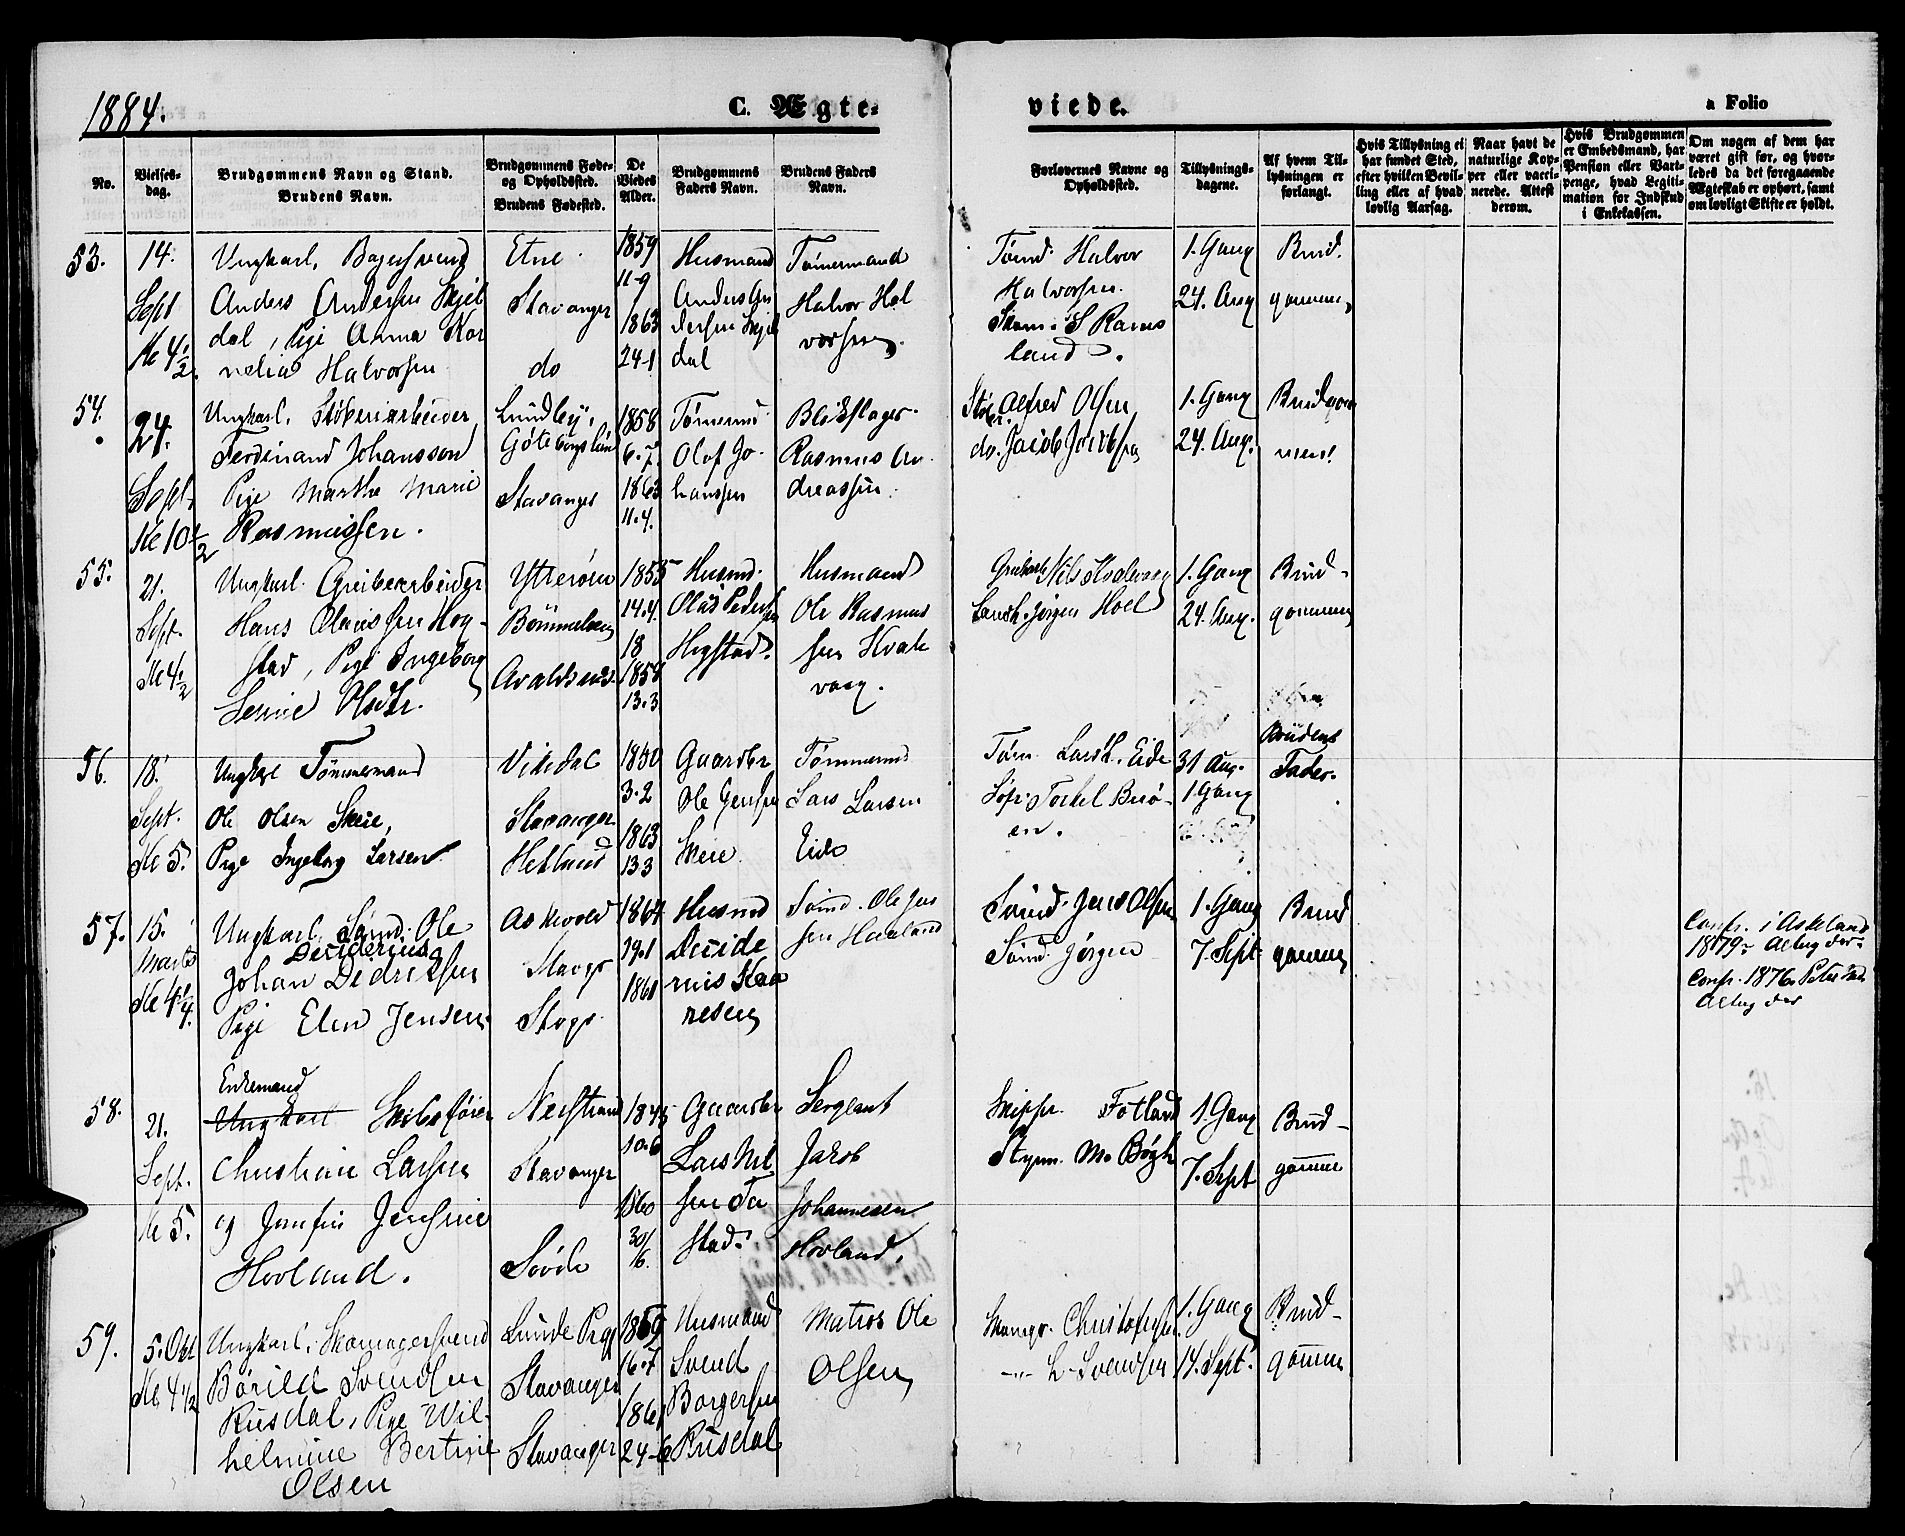 1884.
C. Ægte-
viede.
a Folio
No.
Vielses-
dag.
Brudgommens Navn og Stand.
Brudens Navn.
Brudgommens Føde-
og Opholdssted.
Brudens Fødested.
De
Viedes
Alder.
Brudgommens
Faders Navn.
Brudens Faders
Navn.
Forlovernes Navne og
Opholdssted.
Tillysnings-
dagene.
Af hvem Til-
lysningen er
forlangt.
Hvis Tillysning ei
har fundet Sted,
efter hvilken Bevil-
ling eller af hvad
lovlig Aarsag.
Naar havt de
naturlige Kop-
per eller vacci-
nerede. Attest
derom.
Hvis Brudgommen
er Embedsmand, har
Pension eller Vart-
penge, hvad Legiti-
mation for Indskud
i Enkekassen.
Om nogen af dem har
været gift før, og hvor-
ledes da det foregaaende
Ægteskab er ophørt, samt
om lovligt Skifte er holdt.
53.
14.
Sept
Kl 4 1/2.
Ungkarl, Bagersvend
Anders Andersen Skjel
dal, Pige Anna Kor
nelia Halvorsen
Etne
Stavanger
do
1859
11-9
1863
24-1
Husmand
Anders An
dersen Skjel
dal
Tømermand
Halvor Hal
vorsen.
Tømd. Halvor
Halvorsen.
Skom. S Rams
land.
1. Gang
24. Aug
Brud.
gommen
54.
24.
Sept.
Kl 10 1/2
Ungkarl, Støberiarbeider
Ferdinand Johansson
Pige Marthe Marie
Rasmussen.
Lundby,
Göteborgs län
Stavanger
1858
6.7.
1863
11.4.
Tømermd
Olof Jo-
hanssen
Blikslager
Rasmus An
dreassen.
Støber Alfred Olsen
do. Jacob Jacobsen
1. Gang
24. Aug.
Brudgom
men!
55.
21.
Sept.
Kl 4 1/2
Ungkarl Grubearbeider
Hans Olaus sen Hog-
stad, Pige Ingeborg
Serine Olsdtr.
Ytterøen
Bømmeløen
Avaldsnes
1855
14.4.
18
1858
13.3
Husmd.
Olaus Peder
Hogstad.
Husmand
Ole Rasmus
sen Kvale
vaag.
Nils Kvalevaag
Jørgen Hoel
1. Gang
24. Aug.
Brud-
gommen
56.
18.
Sept.
Kl 5.
Ungkarl Tømmermand
Ole Olsen Skeie,
Pige Ingeborg Larsen
Vikedal
Stavanger
Hetland
1850
3.2
1863
13 3
Gaardbr
Ole Jensen
Skeie
Tømmermd
Lars Larsen
Eide
Tøm. Lars L. Eide
Torkel Buø-
en.
31 Aug.
1. Gang
Brudens
Fader.
57.
15.
Marts
Kl 4 1/4.
Ungkarl Sømd. Ole
Deciderius
Johan Dedriksen
Pige Elen Jensen
Askvold
Stavgr
Stvgr.
1864
19.1
1861
Husmd
Decide
rius Kaa
resen
Sømd. Ole Jen
sen Haaland
Sømd. Jens Olsen
Sømd. Jørgen
1. Gang
7. Sept
Brud
gommen
Conf. i Askeland
1879
Conf. 1876
58.
21.
Sept.
Kl 5.
Enkemand
Ungkarl Skibsfører
Christian Larsen
og Jomfru Jensine
Hovland.
Nerstrand
Stavanger
Søvde
1845
10.6
1860
30/6.
Gaardbr
Lars Niel
sen Tu
stad.
Sergeant
Jakob
Johannesen
Hovland.
Skippr. Fotland
Styrm. M. Bøgh
1. Gang
7. Sept
Brud-
gommen
59.
5. Okt
Kl 4 1/2
Ungkarl, Skomagersvend
Børild Svendsen
Rusdal, Pige Wil-
helmine Bertine
Olsen
Lunde Pgj
Stavanger
Stavanger
1859
16.7
1861
24-6
Husmand
Svend
Borgersen
Rusdal
Matros Ole
Olsen
Skomgr. Christofersen
-"- L. Svendsen
1. Gang
14. Sept.
Brud-
gommen